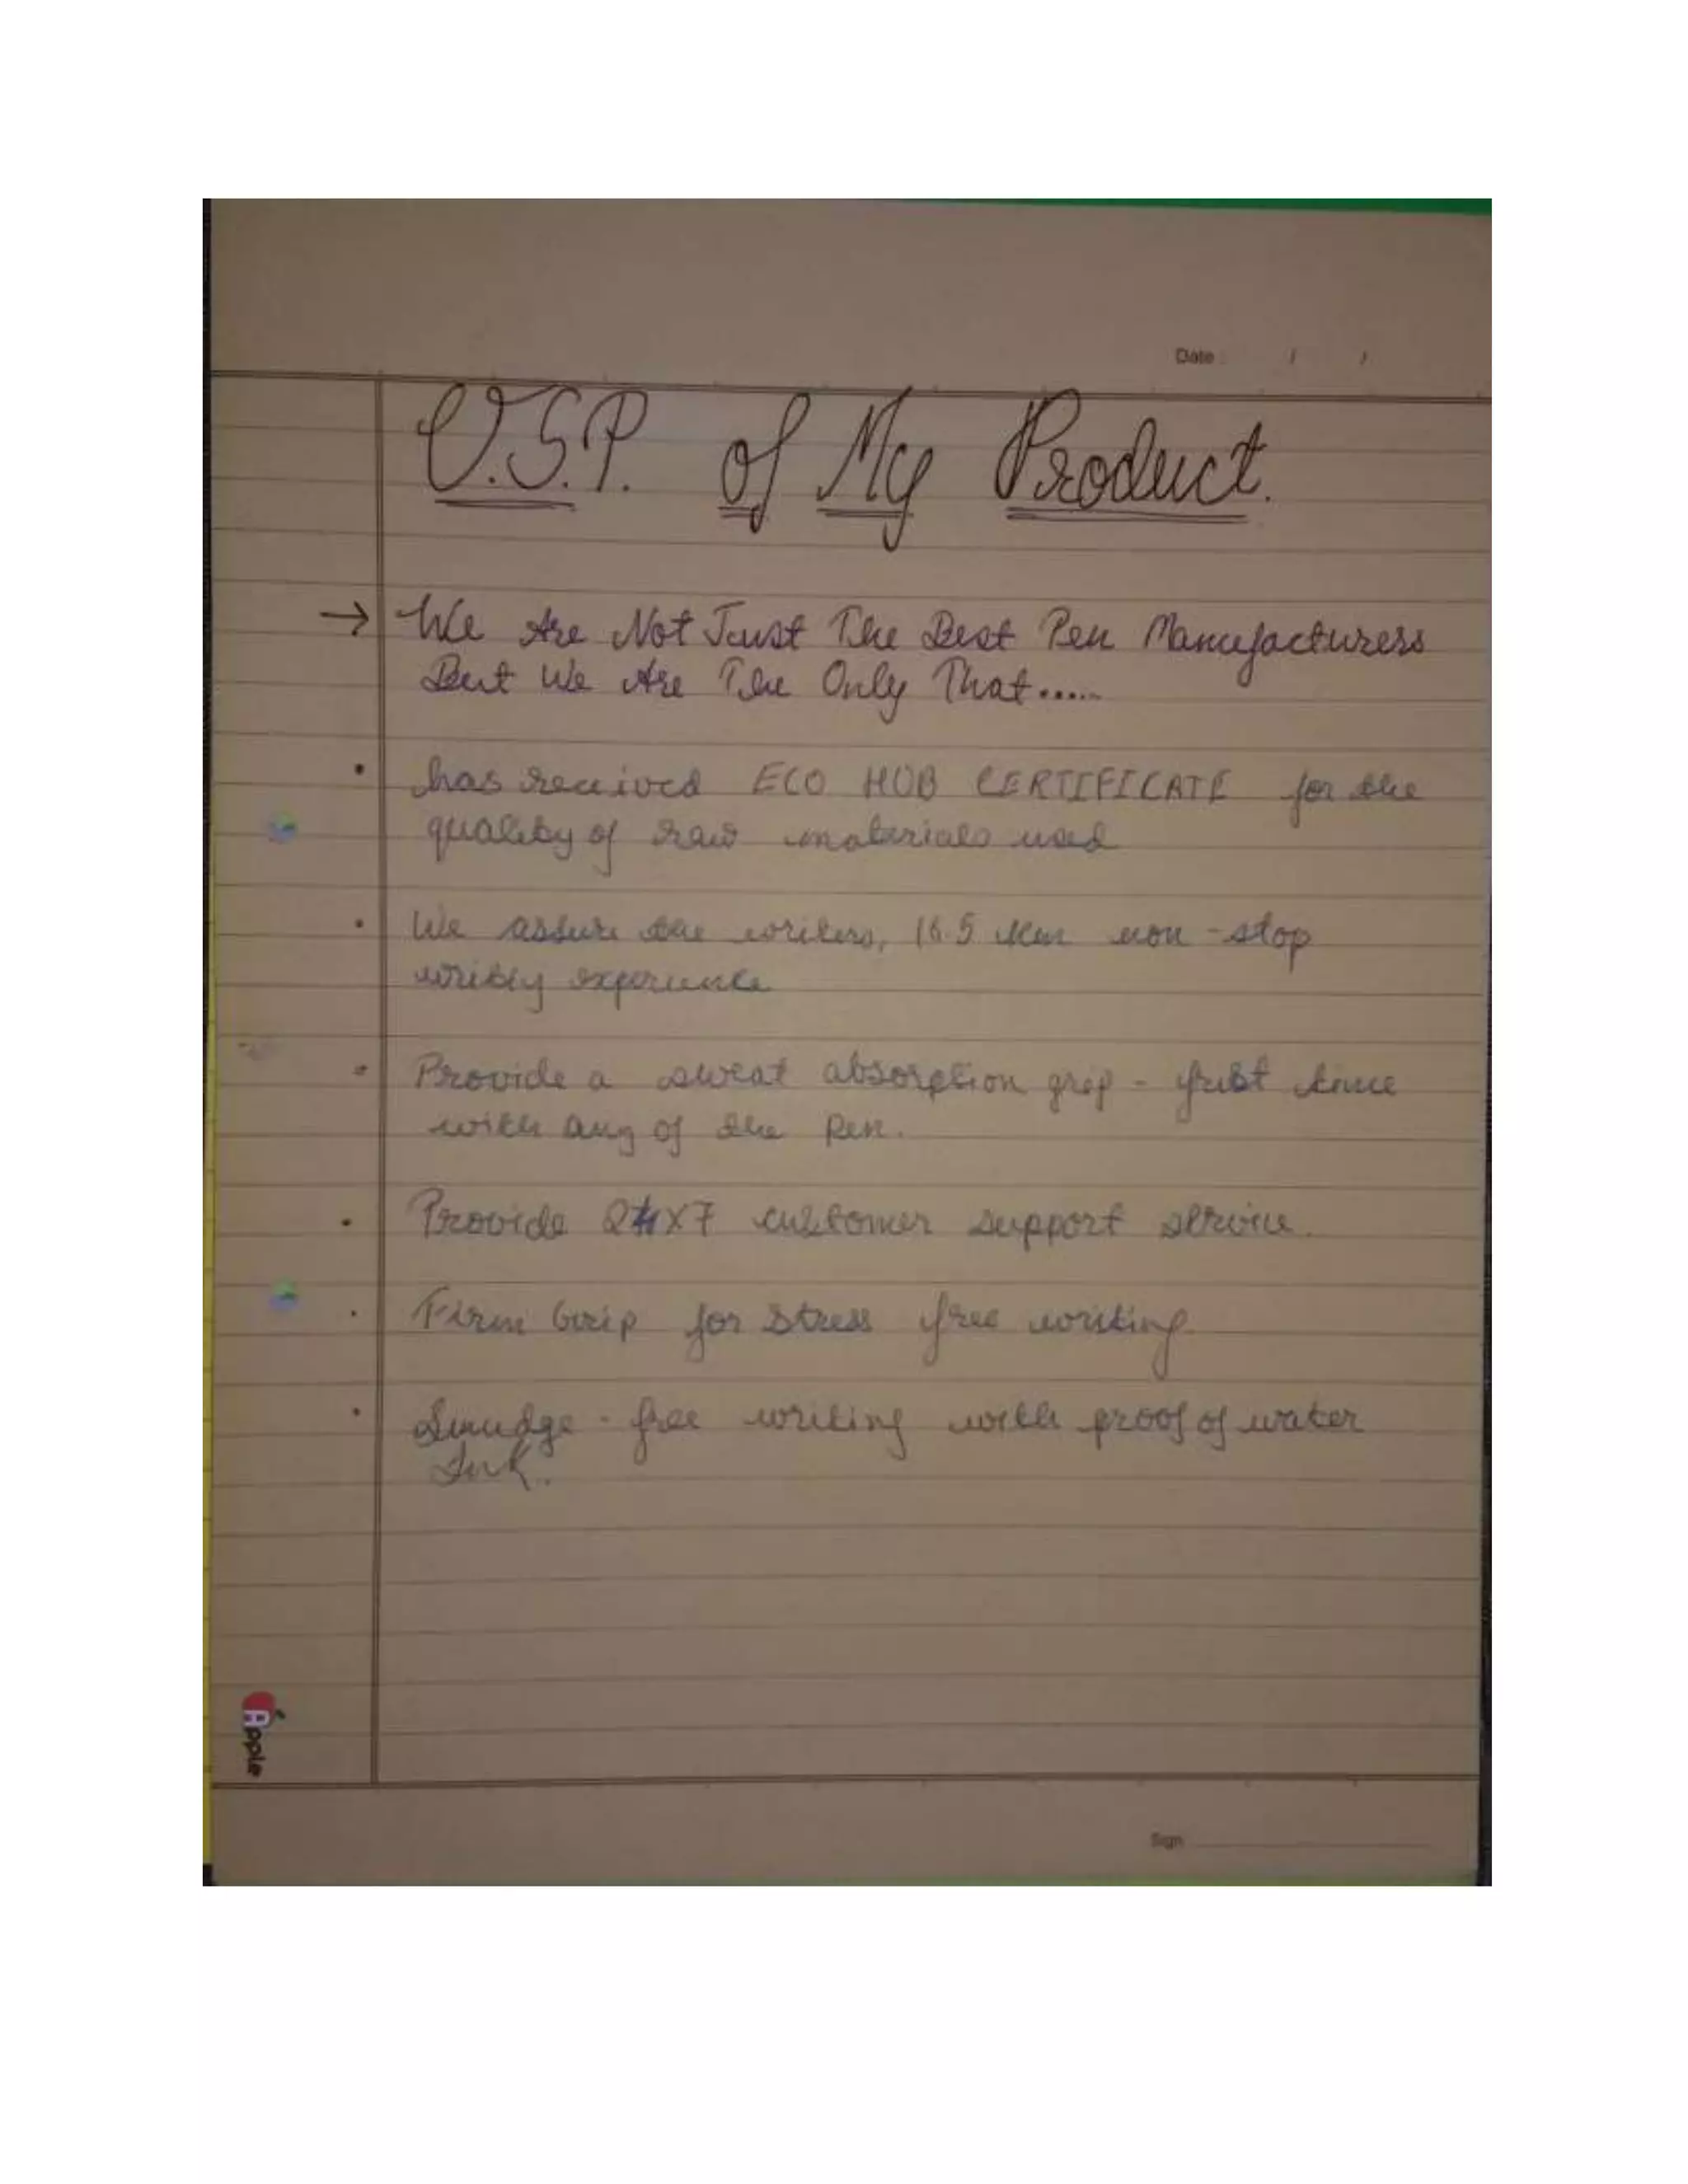 Date : / /
U.S.P. of My Product.
→ We Are Not Just The Best Pen Manufacturers
But We Are The Only That.....
• has received ECO HUB CERTIFICATE for the
quality of raw materials used
• We assure the writers, 16.5 km non-stop
writing experience
• Provide a sweat absorption grip - first time
with any of the Pen.
• Provide 24x7 customer support service.
• Firm Grip for stress free writing
• Smudge-free writing with proof of water
Ink.
Apple
Sign